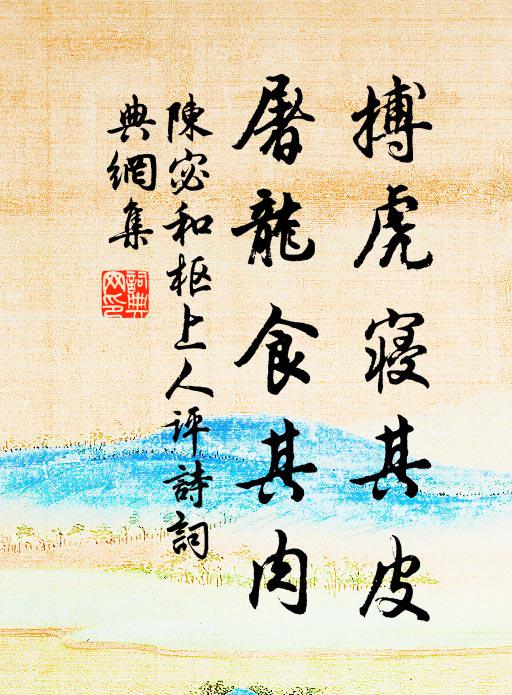 搏虎寢其皮
屠龍食其肉
陳宓和枢上人评詩詞
典網集
詞典
网印